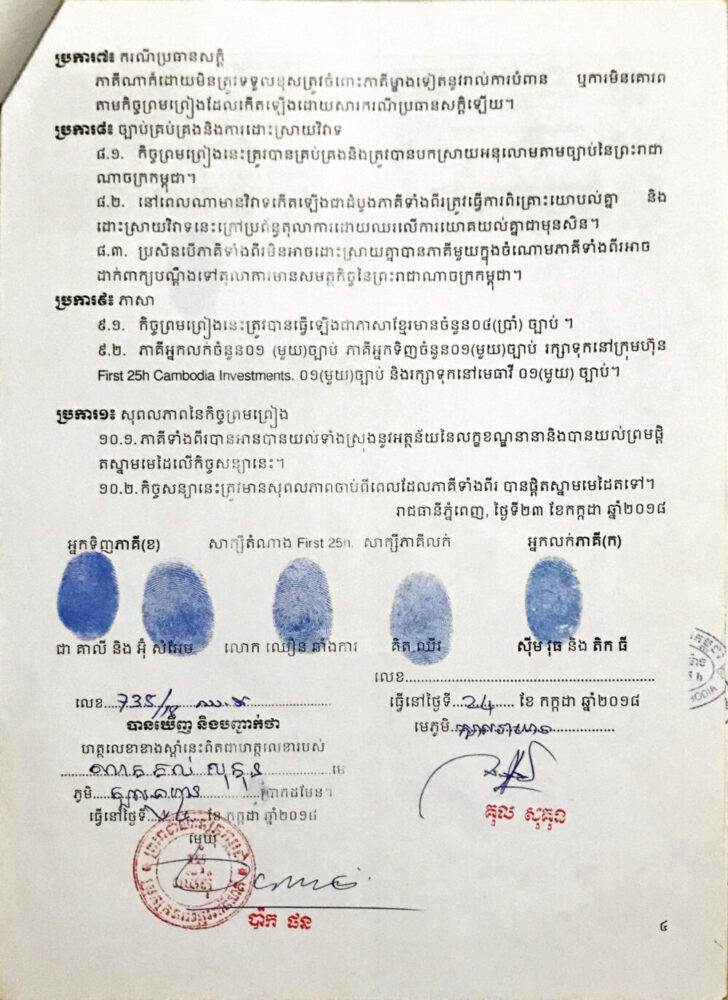 ប្រការ៧៖ ករណីប្រធានសក្ដិ
ភាគីណាក៏ដោយមិនត្រូវទទួលខុសត្រូវចំពោះភាគីម្ខាងទៀតនូវរាល់ការបំពាន ឬការមិនគោរព
តាមកិច្ចព្រមព្រៀងដែលកើតឡើងដោយសារករណីប្រធានសក្ដិឡើយ។
ប្រការ៨៖ ច្បាប់គ្រប់គ្រងនិងការដោះស្រាយវិវាទ
៨.១. កិច្ចព្រមព្រៀងនេះត្រូវបានគ្រប់គ្រងនិងត្រូវបានបកស្រាយអនុលោមតាមច្បាប់នៃព្រះរាជា
ណាចក្រកម្ពុជា។
៨.២. នៅពេលណាមានវិវាទកើតឡើងជាដំបូងភាគីទាំងពីរត្រូវធ្វើការពិគ្រោះយោបល់គ្នា និង
ដោះស្រាយវិវាទនេះក្រៅប្រព័ន្ធតុលាការដោយឈរលើការយោគយល់គ្នាជាមុនសិន។
៨.៣. ប្រសិនបើភាគីទាំងពីរមិនអាចដោះស្រាយគ្នាបានភាគីមួយក្នុងចំណោមភាគីទាំងពីរអាច
ដាក់ពាក្យបណ្ដឹងទៅតុលាការមានសមត្ថកិច្ចនៃព្រះរាជាណាចក្រកម្ពុជា។
ប្រការ៩៖ ភាសា
៩.១. កិច្ចព្រមព្រៀងនេះត្រូវបានធ្វើឡើងជាភាសាខ្មែរមានចំនួន០៤(ប្រាំ) ច្បាប់ ។
៩.២. ភាគីអ្នកលក់ចំនួន០១ (មួយ)ច្បាប់ ភាគីអ្នកទិញចំនួន០១(មួយ)ច្បាប់ រក្សាទុកនៅក្រុមហ៊ុន
First 25h Cambodia Investments. ០១(មួយ)ច្បាប់ និងរក្សាទុកនៅមេធាវី ០១(មួយ) ច្បាប់។
ប្រការ១៖ សុពលភាពនៃកិច្ចព្រមព្រៀង
១០.១. ភាគីទាំងពីរបានអានបានយល់ទាំងស្រុងនូវអត្ថន័យនៃលក្ខខណ្ឌនានានិងបានយល់ព្រមផ្ដិ
តស្នាមមេដៃលើកិច្ចសន្យានេះ។
១០.២. កិច្ចសន្យានេះត្រូវមានសុពលភាពចាប់ពីពេលដែលភាគីទាំងពីរ បានផ្ដិតស្នាមមេដៃតទៅ។
រាជធានីភ្នំពេញ, ថ្ងៃទី២៣ ខែកក្កដា ឆ្នាំ២០១៨
អ្នកទិញភាគី(ខ) សាក្សីតំណាង First 25h. សាក្សីភាគីលក់ អ្នកលក់ភាគី(ក)
ជា គាលី និង អ៊ុំ សំអែម លោក ឈឿន ឆាំងការ គិត ឈីវ ស៊ីម វុធ និង តិក ធី
លេខ
លេខ 735/18 ធ្វើនៅថ្ងៃទី 24 ខែ កក្កដា ឆ្នាំ២០១៨
បានឃើញ និងបញ្ជាក់ថា មេភូមិ
ហត្ថលេខាខាងស្ដាំនេះពិតជាហត្ថលេខារបស់
មេ
ភូមិ ប្រាកដមែន។
គុល សុគុន
ធ្វើនៅថ្ងៃទី ខែ កក្កដា ឆ្នាំ២០១៨
មេឃុំ
ប៉ាក ផន
៤